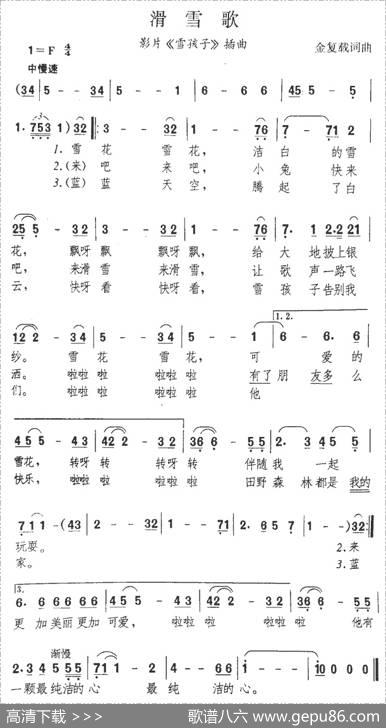 滑雪歌
影片《雪孩子》插曲
1=F 金复载词曲
中慢速
(34 | 5 - - 34 | 5 - - 1 | 6 - - 66 | 6 - - 66 | 45 5 - 5
1. 753 1) 32 ‖: 3 - - 32 | 3 - - 1 | 1 - - 76 | 7 - 71 2
1. 雪 花 雪 花, 洁 白 的雪
2.(来) 吧 来 吧, 小 兔 快来
3.(蓝) 蓝 天 空, 腾 起 了白
25 5 - 32 | 3 - - 32 | 3 - - 1 | 1 - - 76 | 7. 1 2.2 21
花, 飘呀飘 飘呀飘, 给 大 地披上银
吧, 来滑雪 来滑雪, 让 歌 声一路飞
云, 快呀看 快呀看, 雪 孩 子告别我
12 2 - 34 | 5 - - 34 | 5 - - 5 | 1 6 - 6
1.2.
纱。 雪 花 雪 花, 可 爱 的
洒。 啦啦 啦 啦啦 啦, 有了 朋 友多 么
们。 啦啦 啦 啦啦 啦 他
45 5 - 43 | 42 2 - 32 | 36 6 - 55 | 2. 3 45 5
雪花, 转呀 转 转呀 转 伴随 我 一 起
快乐, 啦啦 啦 啦啦 啦, 田野 森 林都是 我的
7 1 1 - (43 | 2 - - 32 | 1 - - 71 | 2. 6 5 67 | 1 - - 1) 32 :‖
玩耍。 2.来
家。 3.蓝
3.
6. 6 66 66 | 45 5 - 43 | 42 2 - 32 | 36 6 - 55
更 加美丽更加 可爱, 啦啦 啦 啦啦 啦 他有
渐慢
2. 3 45 55 | 71 1 - 2 | 4 - 5 5 | 1 - - - | 10 0 0 0 ‖
一颗最纯洁的心 最 纯 洁的 心。
高清下载 >>> 歌谱八六 www.gepu86.com